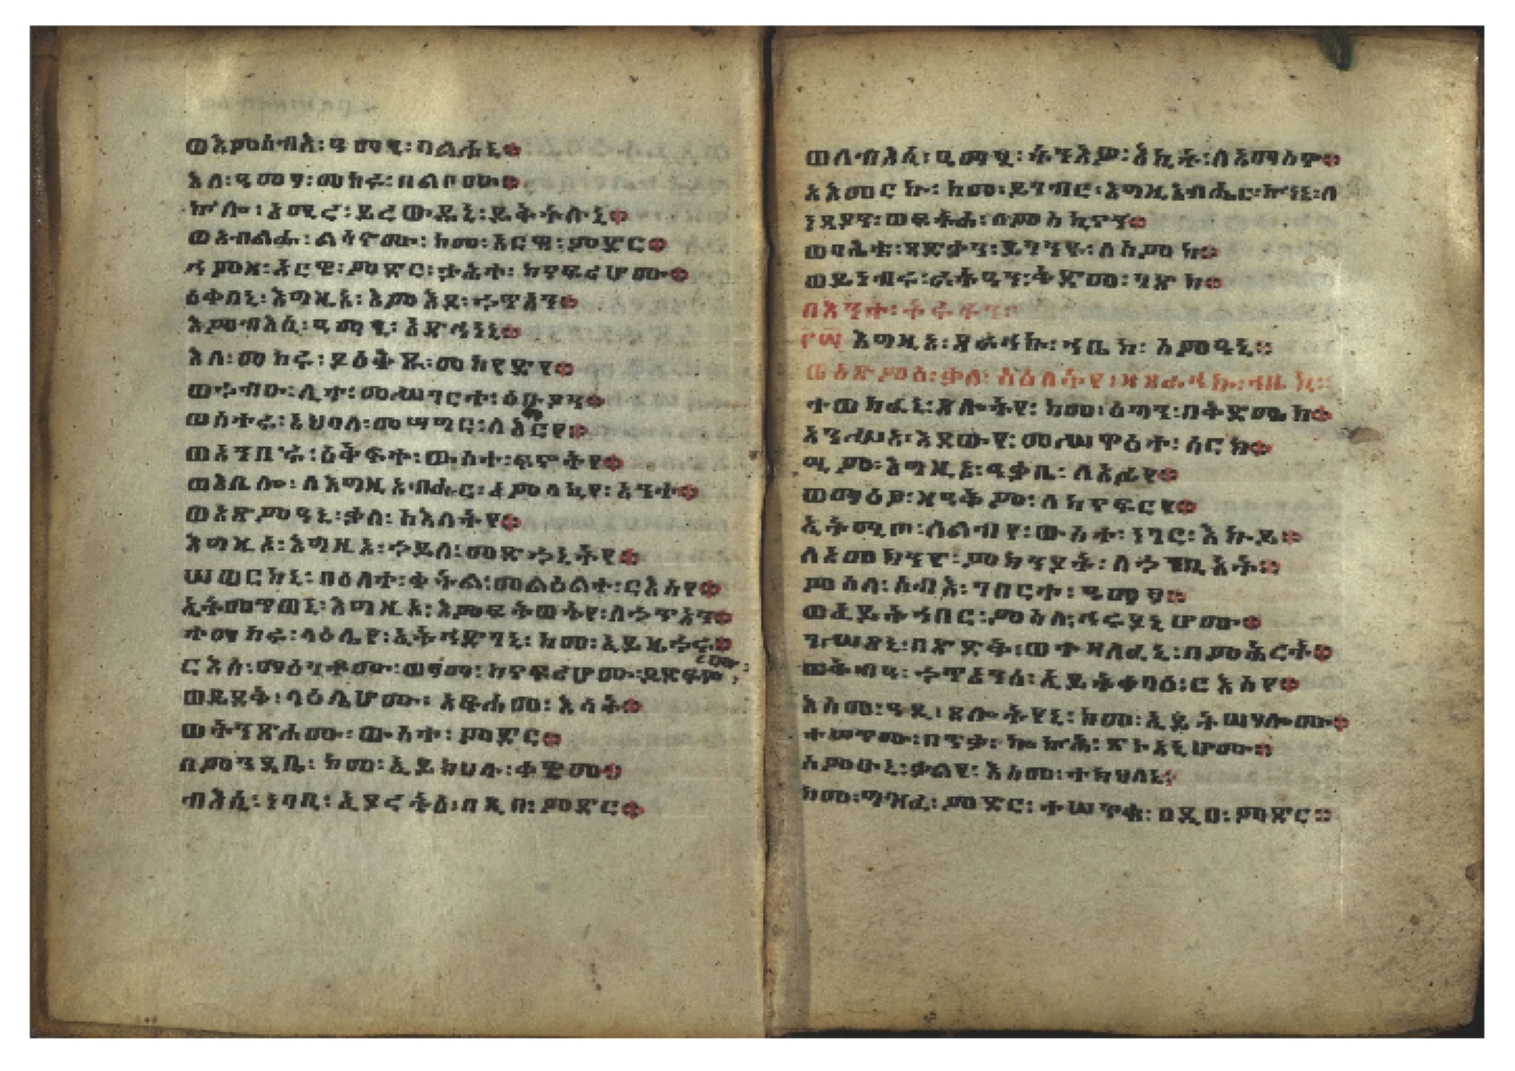 ወእምብእሲ፡ዓማፂ፡ባልሐኒ።
እለ፡ዓመፃ፡መከሩ፡በልቦሙ።
ኵሎ፡አሚረ፡ይረውዱኒ፡ይቅትሉኒ።
ወአብልሑ፡ልሳኖሙ፡ከመ፡አርዌ፡ምድር።
ሕምዘ፡አርዌ፡ምድር፡ታሕተ፡ከናፍሪሆሙ።
ዕቀበኒ፡እግዚኦ፡እምእደ፡ኃጥአን።
እምብእሲ፡ዓማፂ፡አድኅነኒ።
እለ፡መከሩ፡ያዕቅጹ፡መከየድየ።
ወኀብኡ፡ሊተ፡መሥገርተ፡ዕቡያን።
ወሰተሩ፡አህባለ፡መሣግር፡ለእገርየ።
ወአንበሩ፡ዕቅፍተ፡ውስተ፡ፍኖትየ።
ወእቤሎ፡ለእግዚአብሔር፡አምላኪየ፡አንተ።
ወአጽምዓኒ፡ቃለ፡ስእለትየ።
እግዚኦ፡እግዚኦ፡ኃይለ፡መድኃኒትየ።
ሠወርከኒ፡በዕለተ፡ቀትል፡መልዕልተ፡ርእስየ።
ኢትመጥወኒ፡እግዚኦ፡እምፍትወትየ፡ለኃጥአን።
ተማከሩ፡ላዕሌየ፡ኢትኅድገኒ፡ከመ፡ኢይዘኃሩ።
ርእሰ፡ማዕገቶሙ፡ወፃማ፡ከናፍሪሆሙ፡ይደፍኖሙ።
ወይደቅ፡ላዕሌሆሙ፡አፍሐመ፡እሳት።
ወትነጽሖሙ፡ውስተ፡ምድር።
በምንዳቤ፡ከመ፡ኢይክህሉ፡ቀዊመ።
ብእሲ፡ነባቢ፡ኢያረትዕ፡በዲበ፡ምድር።
ወለብእሲ፡ዓማፂ፡ትንእዎ፡እኪት፡ለአማስኖ።
አአመርኩ፡ከመ፡ይገብር፡እግዚአብሔር፡ኵነኔ፡ለ
ነዳያን፡ወፍትሐ፡ለምስኪናን።
ወባሕቱ፡ጻድቃን፡ይገንዩ፡ለስምከ።
ወይነብሩ፡ራትዓን፡ቅድመ፡ገጽከ።
በእንተ፡
እግዚኦ፡ጸራኅኩ፡ኀቤከ፡ስምዓኒ።
ወአጽምዕ፡ቃለ፡ስዕለትየ፡ዘጸራኅኩ፡ኀቤከ።
ተወከፈኒ፡ጸሎትየ፡ከመ፡ዕጣን፡በቅድሜከ።
አንሥኦ፡እደውየ፡መሥዋዕተ፡ሰርክ።
ሢም፡እግዚኦ፡ዓቃቤ፡ለአፉየ።
ወማዕፆ፡ዘዓቅም፡ለከናፍርየ።
ኢትሚጦ፡ለልብየ፡ውስተ፡ነገር፡እኩይ።
ለአመክንዮ፡ምክንያት፡ለኃጢአት።
ምስለ፡ሰብእ፡ገበርተ፡ዓመፃ።
ወኢይትኀበር፡ምስለ፡ኅሩያኒሆሙ።
ገሥጸኒ፡በጽድቅ፡ወተዛለፈኒ፡በምሕረት።
ወቅብዓ፡ኃጥአንሰ፡ኢይትቀባዕ፡ርእስየ።
እስመ፡ዓዲ፡ጸሎትየኒ፡ከመ፡ኢይትሣሃሎሙ።
ተሠጥሙ፡በጥቃ፡ኰኵሕ፡ጽኑዓኒሆሙ።
ስምዑኒ፡ቃልየ፡እስመ፡ተክህለኒ።
ከመ፡ግዝፈ፡ምድር፡ተሠጥቁ፡በዲበ፡ምድር።